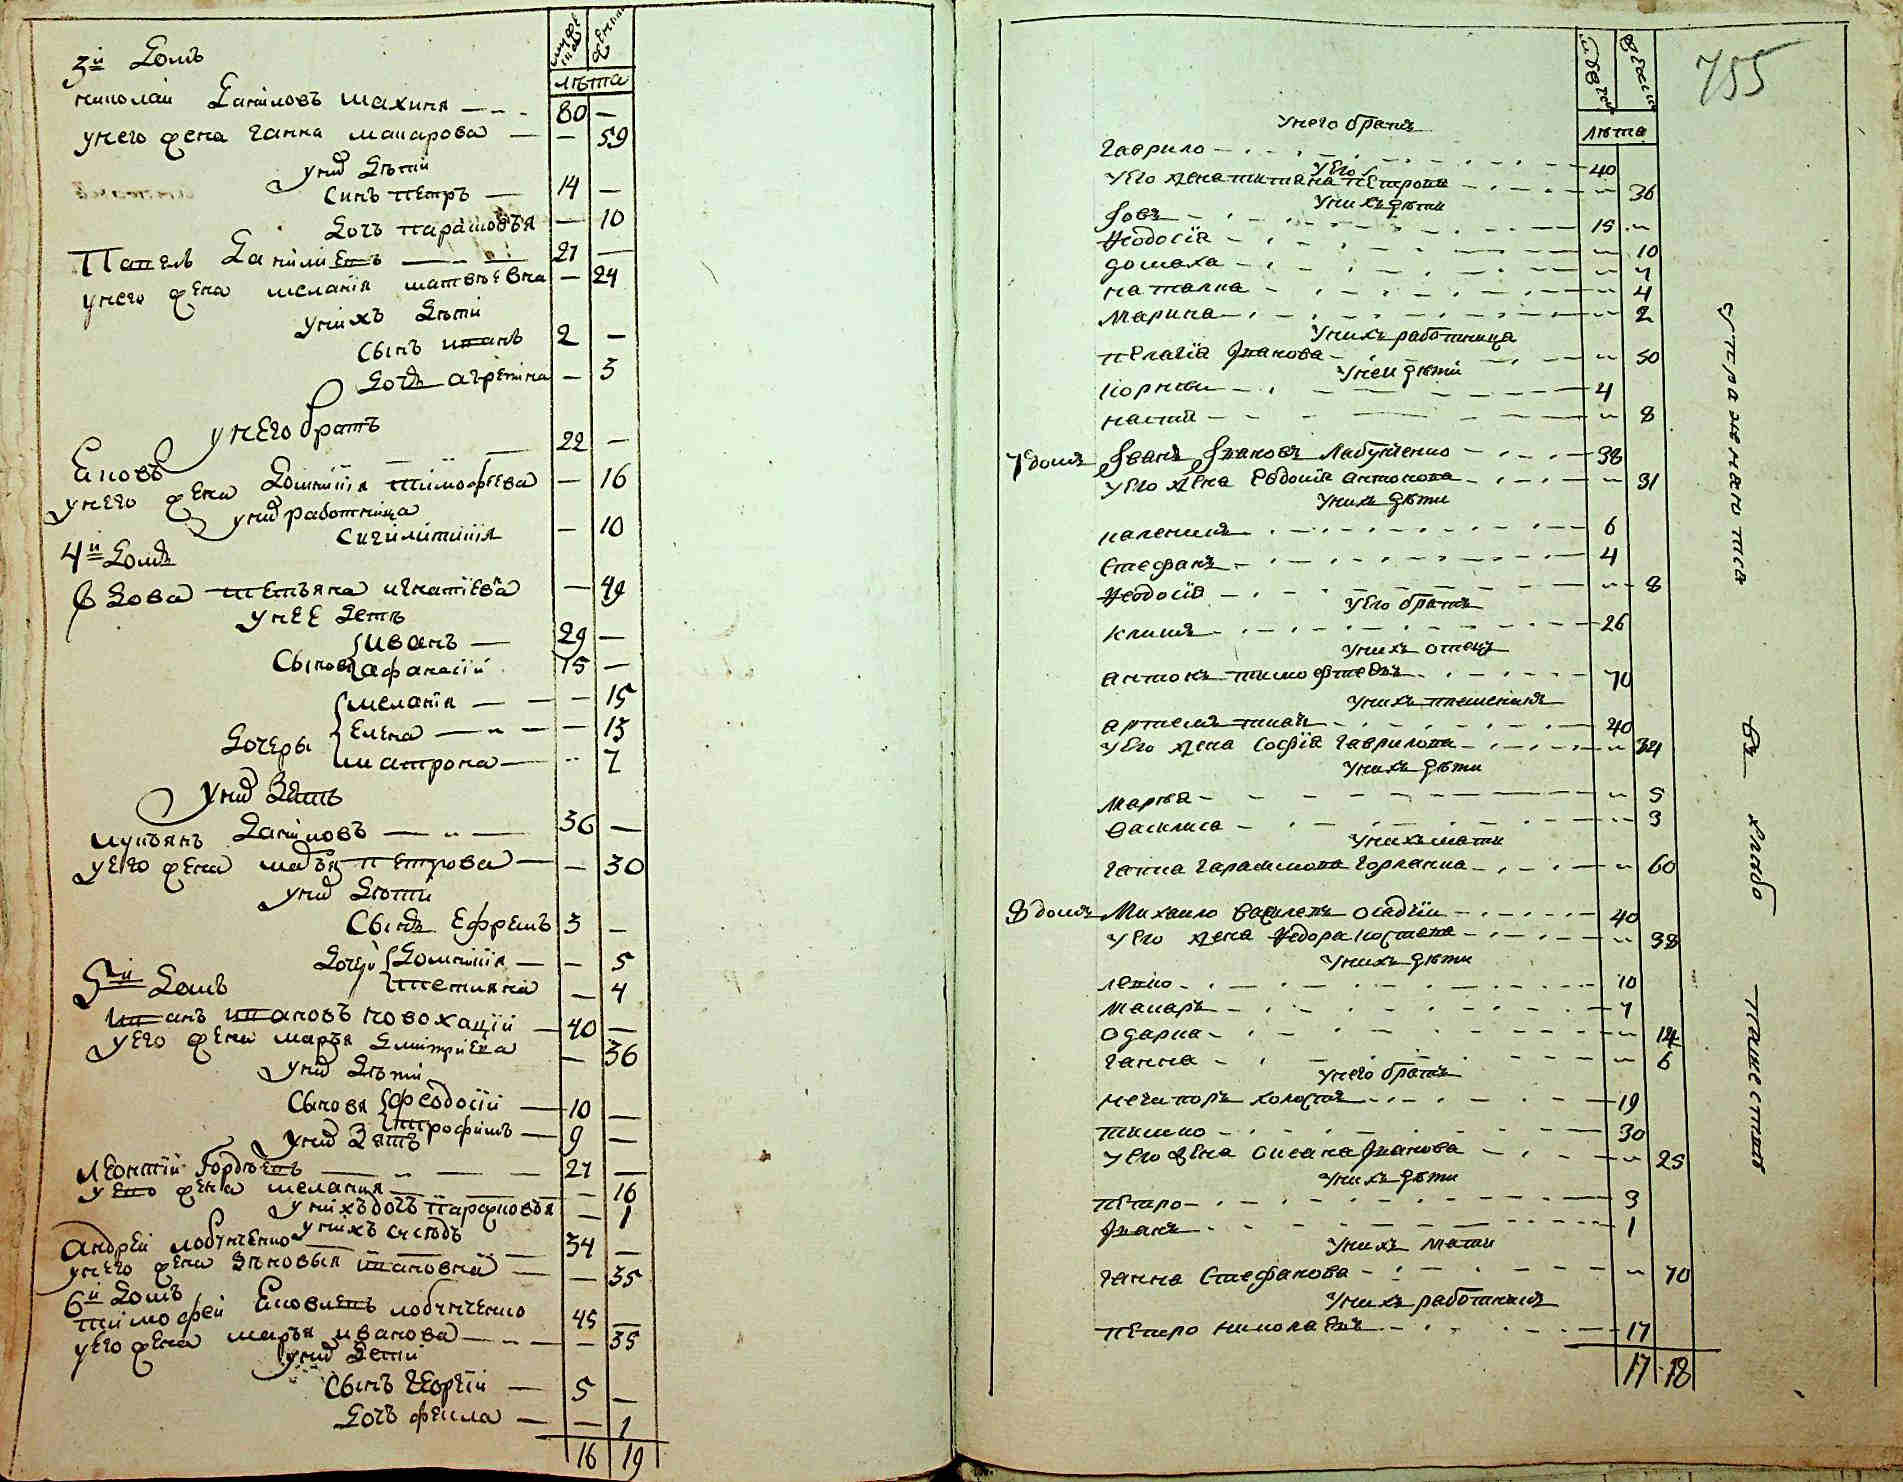 мужеска
женска
лѣта
3й Домъ
николай Даниловъ махиня 80 —
унего жена ганна макарова — 59
уних дѣти
синъ петръ — 14 —
дочъ парасковѣя — 10
Павелъ Данилиевъ 27 —
унего жена меланія матвѣевна — 24
унихъ дѣти
сынъ иванъ 2 —
дочъ агрепина — 3
унего братъ
Яковъ 22 —
унего жена домнікія тимофѣева — 16
уних работница
4й Домъ — 10
вдова татьяна игнатіева — 49
унее дети
сынове иванъ — 29 —
афанасій 15 —
дочеры меланія — 15
елена — 13
матрона — 7
уних зять
лукьянъ Даниловъ 36 —
унего жена марья петрова — 30
уних дѣти
Сынъ Ефремъ 3 —
дочери домникія — 5
тетияна — 4
5й Домъ
иванъ ивановъ новохацкій — 40 —
уего жена марѣя дмитріева — 36
уних дѣти
Сыновя феодосій — 10 —
трофимъ — 9 —
уних зять
леонтій гордѣевъ 27 —
уево жена мелания — 16
унихъ дочъ парасковѣя — 1
унихъ сусѣдъ
андрей лобунченко 34 —
унего жена зѣновыя ивановна — 35
6й Домъ
тимофей Яковлевъ лобунченко 45 —
уего жена марья иванова — 35
уних дети
Сынъ георгій — 5 —
дочъ фекла — 1
16 19
755
мужеска
женска
лѣта
унего братъ
гаврило 40
уего жена татиана петрова 36
унихъ дѣти
Іовъ 15
Феодосіа 10
домаха 7
наталка 4
Марина 2
унихъ работница
пелагіа Іванова 50
унеи дѣти
корнѣи 4
настя 8
7й домъ Іванъ Івановъ лабунченко 38
уего жена Евдокіа антонова 31
унихъ дѣти
каленикъ 6
Стефанъ 4
Феодосіа 8
уего братъ
климъ 26
унихъ отецъ
антонъ тимофѣевъ 70
унихъ племеникъ
артемъ ткачъ 40
уего жена Софіа гаврилова 34
унихъ дѣти
марѳа 5
василиса 3
унихъ мати
ганна гарасимова горланка 60
8 домъ Михаило василевъ осадчіи 40
уего жена Федора костева 38
унихъ дѣти
левко 10
макаръ 7
одарка 14
ганна 6
унего братъ
нечипоръ холостъ 19
тимко 30
уего жена оксана Іванова 25
унихъ дѣти
петро 3
Іванъ 1
унихъ мати
ганна Стефанова 70
унихъ работникъ
петро николаевъ 17
17 18